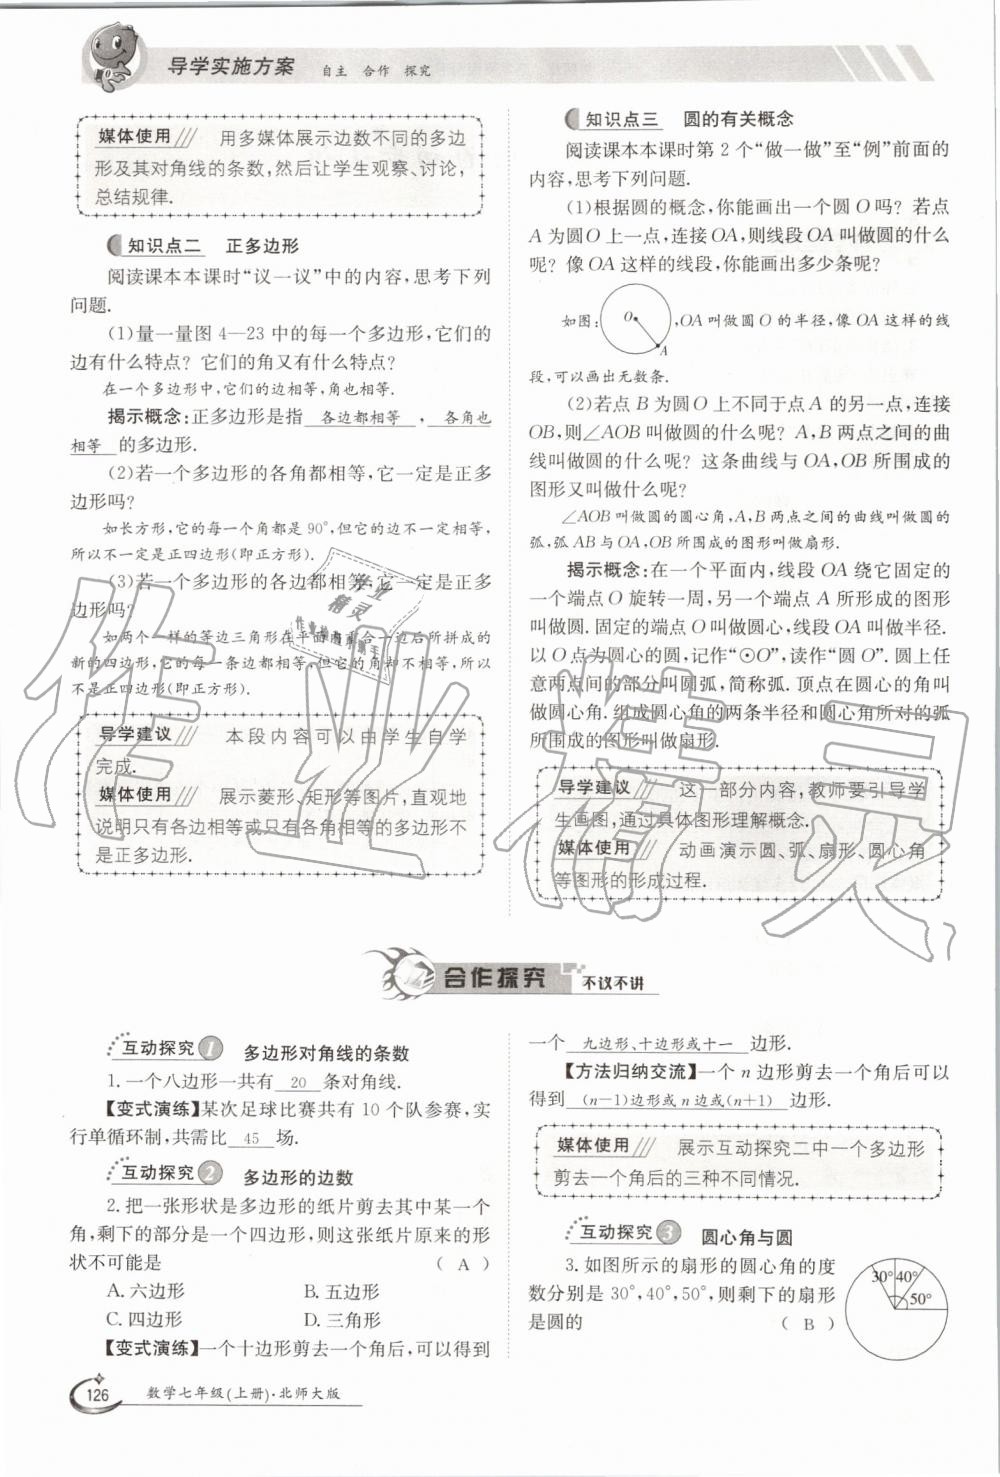 导学实施方案 自主 合作 探究
媒体使用 用多媒体展示边数不同的多边
形及其对角线的条数,然后让学生观察、讨论,
总结规律.
知识点二 正多边形
阅读课本本课时“议一议”中的内容,思考下列
问题.
(1)量一量图4—23中的每一个多边形,它们的
边有什么特点? 它们的角又有什么特点?
在一个多边形中,它们的边相等,角也相等.
揭示概念:正多边形是指 各边都相等 , 各角也
相等 的多边形.
(2)若一个多边形的各角都相等,它一定是正多
边形吗?
如长方形,它的每一个角都是90°,但它的边不一定相等,
所以不一定是正四边形(即正方形).
(3)若一个多边形的各边都相等,它一定是正多
边形吗?
如两个一样的等边三角形在平面内重合一边后所拼成的
新的四边形,它的每一条边都相等,但它的角却不相等,所以
不是正四边形(即正方形).
导学建议 本段内容可以由学生自学
完成.
媒体使用 展示菱形、矩形等图片,直观地
说明只有各边相等或只有各角相等的多边形不
是正多边形.
知识点三 圆的有关概念
阅读课本本课时第2个“做一做”至“例”前面的
内容,思考下列问题.
(1)根据圆的概念,你能画出一个圆O吗? 若点
A为圆O上一点,连接OA,则线段OA叫做圆的什么
呢? 像OA这样的线段,你能画出多少条呢?
如图: O A ,OA叫做圆O的半径,像OA这样的线
段,可以画出无数条.
(2)若点B为圆O上不同于点A的另一点,连接
OB,则∠AOB叫做圆的什么呢? A,B两点之间的曲
线叫做圆的什么呢? 这条曲线与OA,OB所围成的
图形又叫做什么呢?
∠AOB叫做圆的圆心角,A,B两点之间的曲线叫做圆的
弧,弧AB与OA,OB所围成的图形叫做扇形.
揭示概念:在一个平面内,线段OA绕它固定的
一个端点O旋转一周,另一个端点A所形成的图形
叫做圆.固定的端点O叫做圆心,线段OA叫做半径.
以O点为圆心的圆,记作“⊙O”,读作“圆O”.圆上任
意两点间的部分叫圆弧,简称弧.顶点在圆心的角叫
做圆心角.组成圆心角的两条半径和圆心角所对的弧
所围成的图形叫做扇形.
导学建议 这一部分内容,教师要引导学
生画图,通过具体图形理解概念.
媒体使用 动画演示圆、弧、扇形、圆心角
等图形的形成过程.
合作探究 不议不讲
互动探究1 多边形对角线的条数
1.一个八边形一共有 20 条对角线.
【变式演练】某次足球比赛共有10个队参赛,实
行单循环制,共需比 45 场.
互动探究2 多边形的边数
2.把一张形状是多边形的纸片剪去其中某一个
角,剩下的部分是一个四边形,则这张纸片原来的形
状不可能是 ( A )
A.六边形 B.五边形
C.四边形 D.三角形
【变式演练】一个十边形剪去一个角后,可以得到
一个 九边形、十边形或十一 边形.
【方法归纳交流】一个n边形剪去一个角后可以
得到 (n-1)边形或n边或(n+1) 边形.
媒体使用 展示互动探究二中一个多边形
剪去一个角后的三种不同情况.
互动探究3 圆心角与圆
3.如图所示的扇形的圆心角的度
数分别是30°,40°,50°,则剩下的扇形
是圆的 ( B )
30° 40°
50°
126 数学七年级(上册)·北师大版
作业精灵